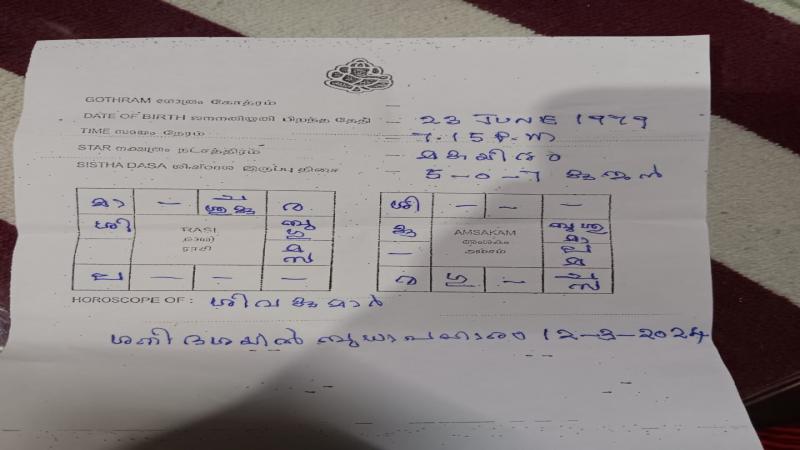 GOTHRAM ഗോത്രം கோத்ரம் —
DATE OF BIRTH ജനനതിയ്യതി பிறந்த தேதி — 23 JUNE 1979
TIME സമയം நேரம் — 7.15 P.M
STAR നക്ഷത്രം நட்சத்திரம் — മകയിരം
SISTHA DASA ശിഷ്ടദശ இருப்பு திசை — 5-0-7 കുജൻ
മാ — ര
ശി RASI രാശി ராசி ബു ഗു
മ സ
ല — — —
ശി — — —
കു AMSAKAM അംശകം அம்சம்
—
ര ഗു —
HOROSCOPE OF : ശിവകുമാർ
ശനിദശയിൽ ബുധാപഹാരം 12-3-2024